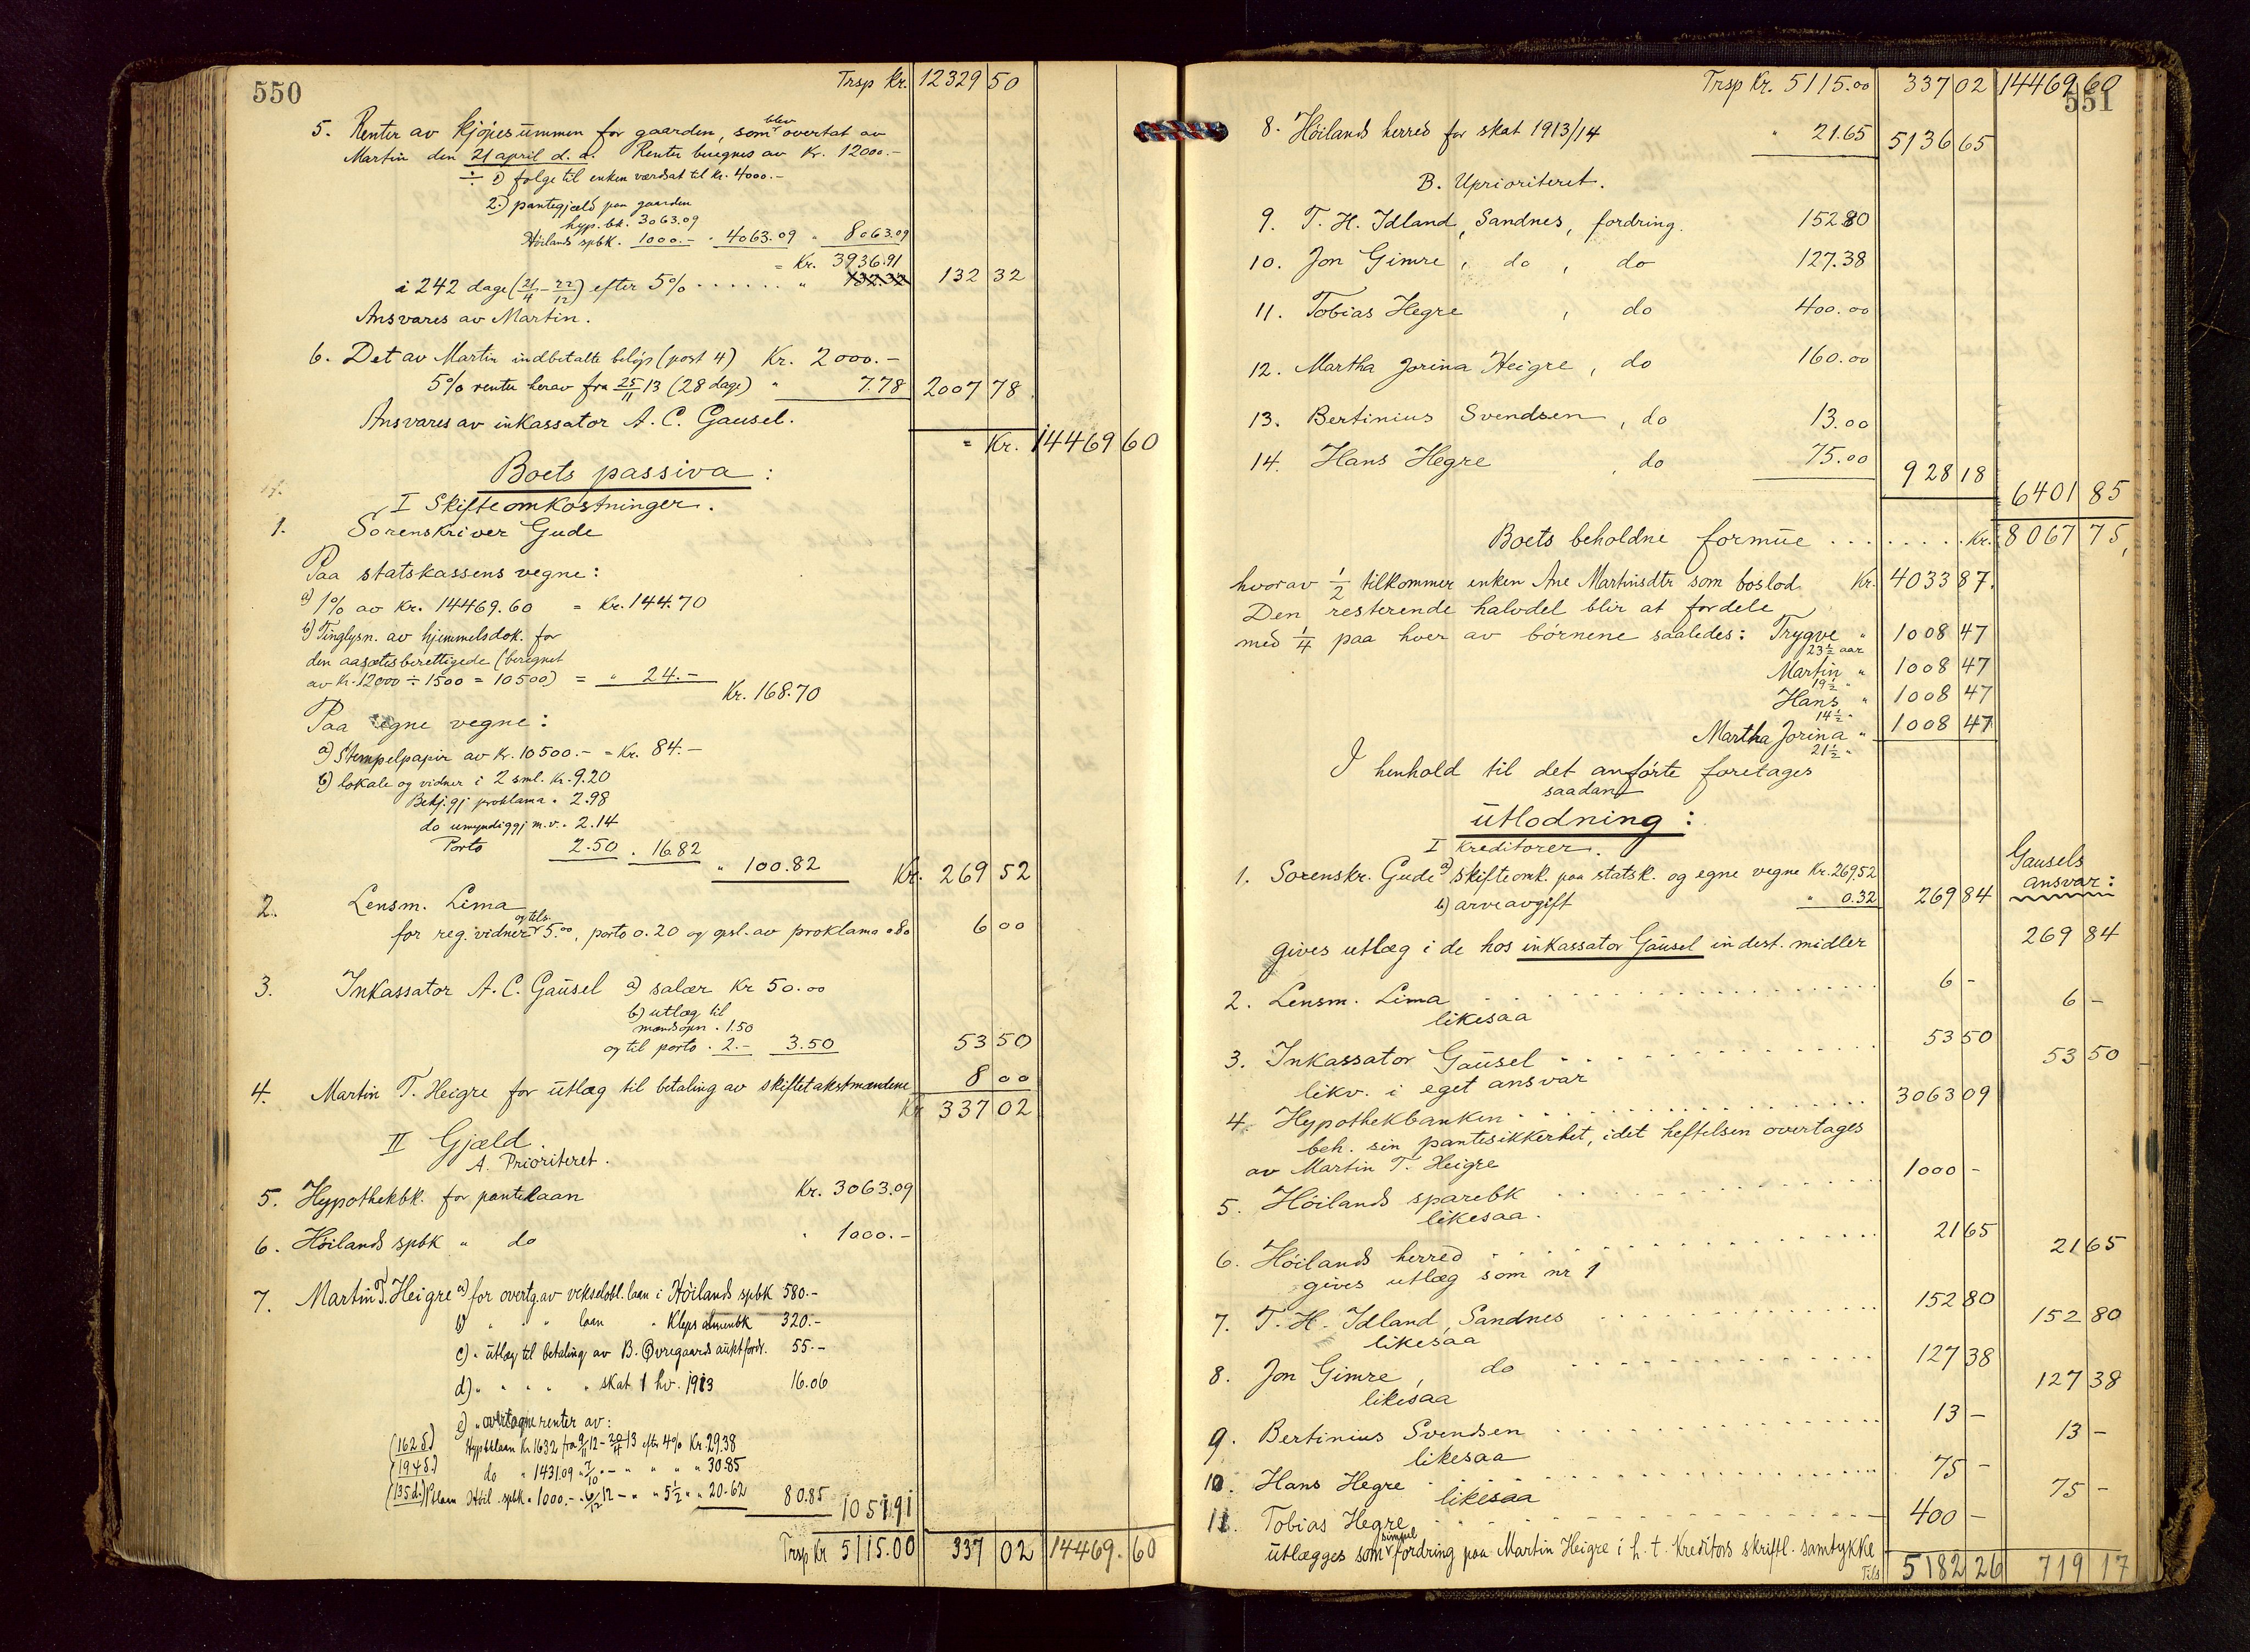 550
Trsp Kr. 12329 50
5. Renter av kjøpesummen for gaarden, som blev overtat av
Martin den 21 april d. a. Renter beregnes av Kr. 12000.-
÷ 1) følge til enken værdsat til kr. 4000.-
2.) pantegjæld paa gaarden
hyp. bk. 3063.09
Høilands spbk. 1000.- " 4063.09 " 8063.09
= Kr. 3936.91
i 242 dage (21/4 - 22/12) efter 5% . . . . . . " 132.32 132 32
Ansvares av Martin.
6. Det av Martin indbetalte beløp (post 4) Kr. 2000.-
5% renter herav fra 25/11 13 (28 dage) " 7.78 2007 78
Ansvares av inkassator A. C. Gausel.
= Kr. 14469 60
Boets passiva:
I Skifteomkostninger.
1. Sorenskriver Gude
Paa statskassens vegne:
a) 1% av Kr. 14469.60 = Kr. 144.70
b) Tinglysn. av hjemmelsdok. for
den aasætesberettigede (beregnet
av Kr. 12000 ÷ 1500 = 10500) = " 24.-
Kr. 168.70
Paa egne vegne:
a) Stempelpapir av Kr. 10500.- = Kr. 84.-
b) lokale og vidner i 2 sml. Kr. 9.20
Bekj.gj proklama " 2.98
do umyndiggj m.v. " 2.14
Porto 2.50 " 16.82
" 100.82 Kr. 269 52
2. Lensm. Lima
for reg. vidner og tils. 5.00, porto 0.20 og opsl. av proklama 0.80 6 00
3. Inkassator A. C. Gausel a) salær Kr 50.00
b) utlæg til
mandsopn. 1.50
og til porto " 2.- 3.50 53 50
4. Martin T. Heigre for utlæg til betaling av skiftetakstmændene 8 00
Kr 337 02
II Gjæld.
A. Prioriteret.
5. Hypothekbk. for pantelaan Kr. 3063.09
6. Høilands spbk " do " 1000.-
7. Martin T. Heigre a) for overtg. av vekselobl. laan i Høilands spbk 580.-
b) " " " laan " Kleps almenbk 320.-
c) " utlæg til betaling av B. Øvregaards auktfordr. 55.-
d) " " " " " skat 1 hv. 1913 16.06
e) " overtagne renter av:
(162 d.) Hypbklaan Kr. 1632 fra 9/11 12 - 20/4 13 efter 4% Kr. 29.38
(194 d.) do " 1431.09 " 7/10 " - " " " " 30.85
(135 d.) Plaan Høil. spbk " 1000.- " 6/12 12 - " " 5½ " " 20.62 80.85 1051.91
Trsp Kr 5115.00 337 02 14469.60
551
Trsp Kr. 5115.00 337 02 14469 60
8. Høilands herred for skat 1913/14 " 21.65 5136 65
B. Uprioriteret.
9. T. H. Idland, Sandnes, fordring. 152.80
10. Jon Gimre, do, do 127.38
11. Tobias Hegre, do 400.00
12. Martha Jorina Heigre, do 160.00
13. Bertinius Svendsen, do 13.00
14. Hans Hegre, do 75.00 928 18
6401 85
Boets beholdne formue . . . . . . . . Kr. 8067 75
hvorav ½ tilkommer enken Ane Martinsdtr som boslod Kr. 4033 87.
Den resterende halvdel blir at fordele
med ¼ paa hver av børnene saaledes: Trygve " 1008 47
23½ aar
Martin " 1008 47
19½ "
Hans " 1008 47
14½ "
Martha Jorina " 1008 47
21½ "
I henhold til det anførte foretages
saadan
utlodning:
I Kreditorer.
Gausels
ansvar:
1. Sorenskr. Gude a) skifteomk. paa statsk. og egne vegne Kr. 269,52
b) arveavgift " 0.32 269 84
gives utlæg i de hos inkassator Gausel indest. midler 269 84
2. Lensm. Lima . . . . . . 6 -
likesaa 6 -
3. Inkassator Gausel . . . . . . 53 50
likv. i eget ansvar 53 50
4. Hypothekbanken . . . . . . 3063 09
beh. sin pantesikkerhet, idet heftelsen overtages
av Martin T. Heigre
5. Høilands sparebk . . . . . . 1000 -
likesaa.
6. Høilands herred . . . . . . 21 65
gives utlæg som nr 1 21 65
7. T. H. Idland, Sandnes . . . . . . 152 80
likesaa 152 80
8. Jon Gimre, do . . . . . . 127 38
likesaa 127 38
9. Bertinius Svendsen . . . . . . 13 -
likesaa 13 -
10. Hans Hegre . . . . . . 75 -
likesaa 75 -
11. Tobias Hegre . . . . . . 400 -
utlægges som simpel fordring paa Martin Heigre i h. t. Kreditors skriftl. samtykke
Tils 5182 26 719 17